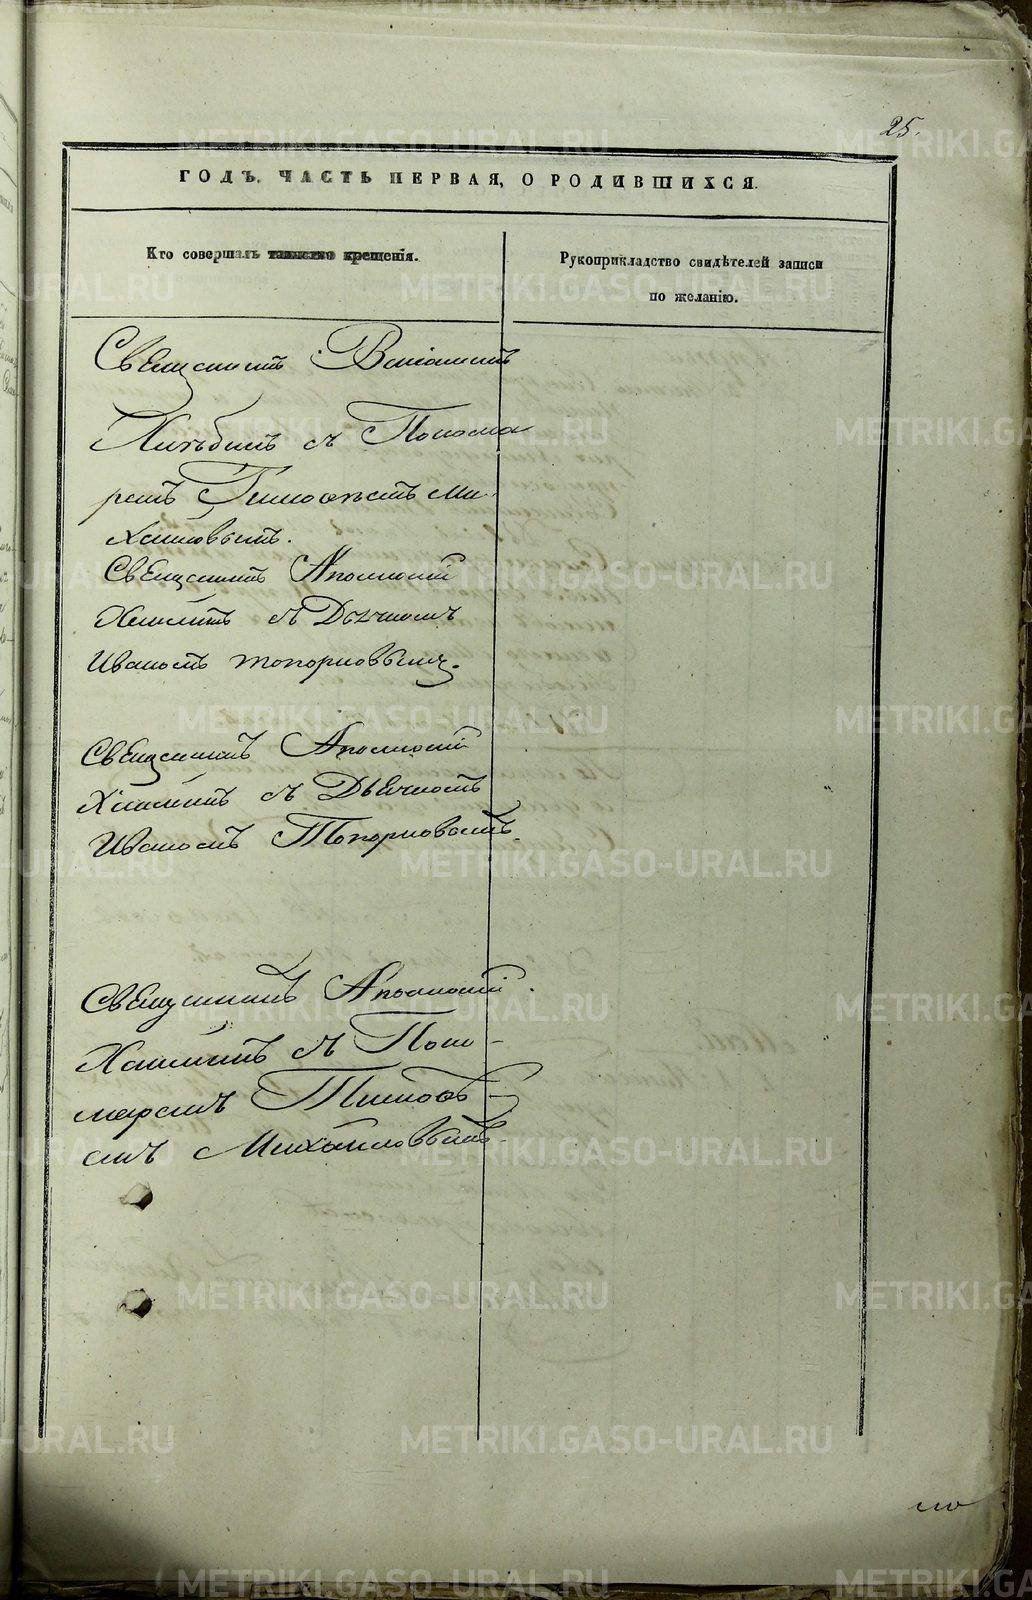 25.
ГОДЪ. ЧАСТЬ ПЕРВАЯ, О РОДИВШИХСЯ.
Кто совершалъ таинство крещенія.
Рукоприкладство свидѣтелей записи
по желанію.
Священникъ
съ Понома
ремъ Тимофеемъ Ми
хайловымъ.
Священникъ Аполлоній
съ Дьячкомъ
Иваномъ Топорковымъ.
Священникъ Аполлоній
съ Дьячкомъ
Иваномъ Топорковымъ.
Священникъ Аполлоній
съ Поно-
маремъ Тимофе-
емъ Михайловымъ
METRIKI.GASO-URAL.RU